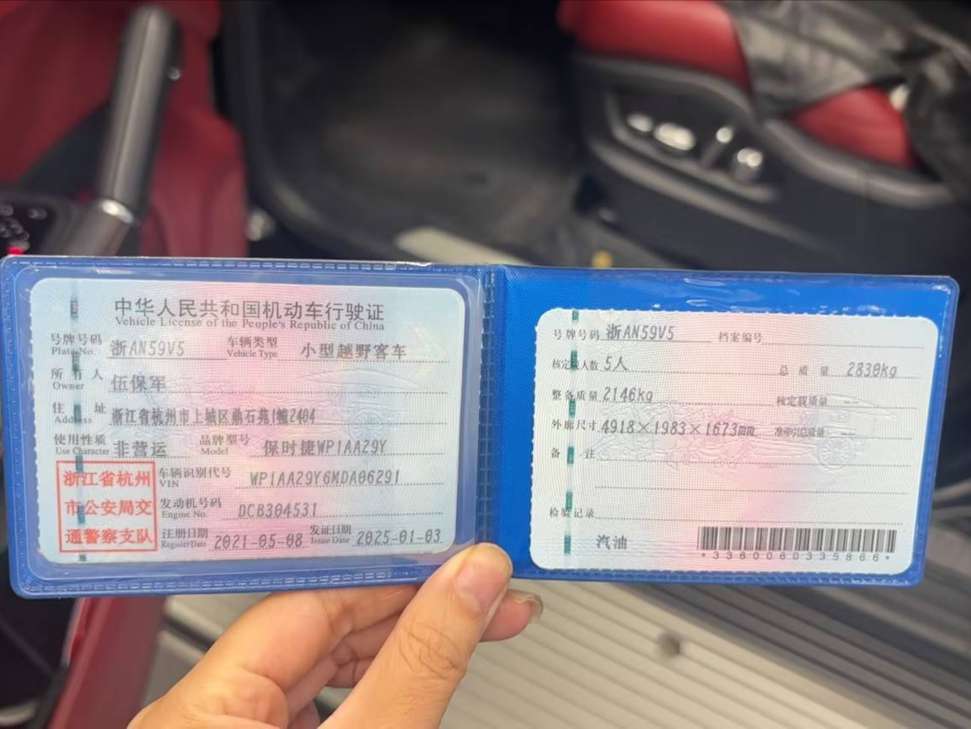 中华人民共和国机动车行驶证
Vehicle License of the People's Republic of China
号牌号码 浙AN59V5 车辆类型 小型越野客车
Plate No. Vehicle Type
所有人 伍保军
Owner
住址 浙江省杭州市上城区鼎石苑1幢2404
Address
使用性质 非营运 品牌型号 保时捷WP1AA29Y
Use Character Model
浙江省杭州
市公安局交
通警察支队
车辆识别代号 WP1AA29Y6MDA06291
VIN
发动机号码 DCB304531
Engine No.
注册日期 2021-05-08 发证日期 2025-01-03
Register Date Issue Date
号牌号码 浙AN59V5 档案编号
核定载人数 5人 总质量 2830kg
整备质量 2146kg 核定载质量 --
外廓尺寸 4918×1983×1673mm 准牵引总质量 --
备注
检验记录
汽油
*3360060335866*